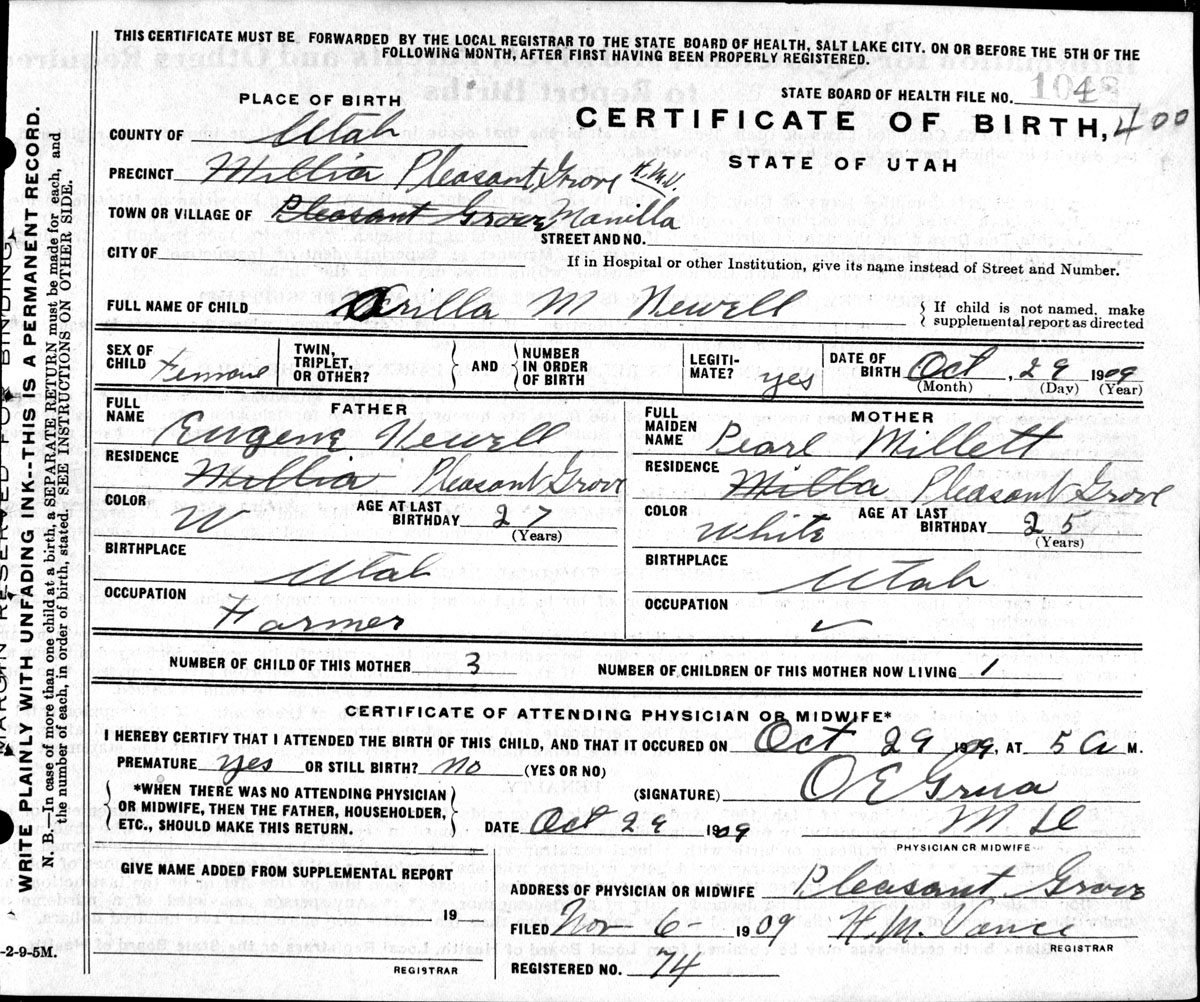 THIS CERTIFICATE MUST BE FORWARDED BY THE LOCAL REGISTRAR TO THE STATE BOARD OF HEALTH, SALT LAKE CITY, ON OR BEFORE THE 5TH OF THE
FOLLOWING MONTH, AFTER FIRST HAVING BEEN PROPERLY REGISTERED.
STATE BOARD OF HEALTH FILE NO. 104
PLACE OF BIRTH
CERTIFICATE OF BIRTH, 400
COUNTY OF Utah
STATE OF UTAH
PRECINCT Pleasant Grove
TOWN OR VILLAGE OF Pleasant Grove Manilla
STREET AND NO.
CITY OF
If in Hospital or other Institution, give its name instead of Street and Number.
FULL NAME OF CHILD Orilla M Newell
If child is not named, make
supplemental report as directed
SEX OF CHILD Female TWIN, TRIPLET, OR OTHER? AND NUMBER IN ORDER OF BIRTH LEGITI-MATE? yes DATE OF BIRTH Oct, 29 1909
(Month) (Day) (Year)
FATHER
FULL NAME Eugene Newell
RESIDENCE Pleasant Grove
COLOR W AGE AT LAST BIRTHDAY 27
(Years)
BIRTHPLACE Utah
OCCUPATION Farmer
MOTHER
FULL MAIDEN NAME Pearl Millett
RESIDENCE Pleasant Grove
COLOR White AGE AT LAST BIRTHDAY 25
(Years)
BIRTHPLACE Utah
OCCUPATION ✓
NUMBER OF CHILD OF THIS MOTHER 3 NUMBER OF CHILDREN OF THIS MOTHER NOW LIVING 1
CERTIFICATE OF ATTENDING PHYSICIAN OR MIDWIFE*
I HEREBY CERTIFY THAT I ATTENDED THE BIRTH OF THIS CHILD, AND THAT IT OCCURED ON Oct 29 1909, AT 5 A M.
PREMATURE yes OR STILL BIRTH? no (YES OR NO)
*WHEN THERE WAS NO ATTENDING PHYSICIAN
OR MIDWIFE, THEN THE FATHER, HOUSEHOLDER,
ETC., SHOULD MAKE THIS RETURN.
(SIGNATURE) O E Grua
DATE Oct 29 1909 M D
PHYSICIAN OR MIDWIFE
GIVE NAME ADDED FROM SUPPLEMENTAL REPORT
19
REGISTRAR
ADDRESS OF PHYSICIAN OR MIDWIFE Pleasant Grove
FILED Nov 6- 1909 H. M. Vance
REGISTRAR
REGISTERED NO. 74
MARGIN RESERVED FOR BINDING
WRITE PLAINLY WITH UNFADING INK--THIS IS A PERMANENT RECORD.
N. B.—In case of more than one child at a birth, a SEPARATE RETURN must be made for each, and
the number of each, in order of birth, stated. SEE INSTRUCTIONS ON OTHER SIDE.
-2-9-5M.